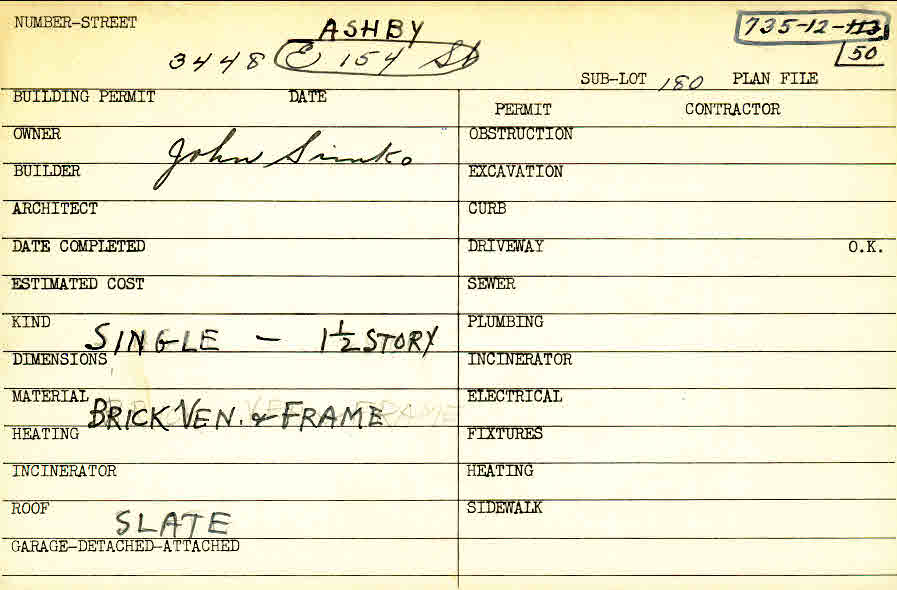 NUMBER-STREET
ASHBY
3448 E 154 St
735-12-113
50
SUB-LOT 180 PLAN FILE
BUILDING PERMIT DATE
PERMIT CONTRACTOR
OWNER John Simko
OBSTRUCTION
BUILDER
EXCAVATION
ARCHITECT
CURB
DATE COMPLETED
DRIVEWAY O.K.
ESTIMATED COST
SEWER
KIND SINGLE - 1½ STORY
PLUMBING
DIMENSIONS
INCINERATOR
MATERIAL BRICK VEN. & FRAME
ELECTRICAL
HEATING
FIXTURES
INCINERATOR
HEATING
ROOF SLATE
SIDEWALK
GARAGE-DETACHED-ATTACHED